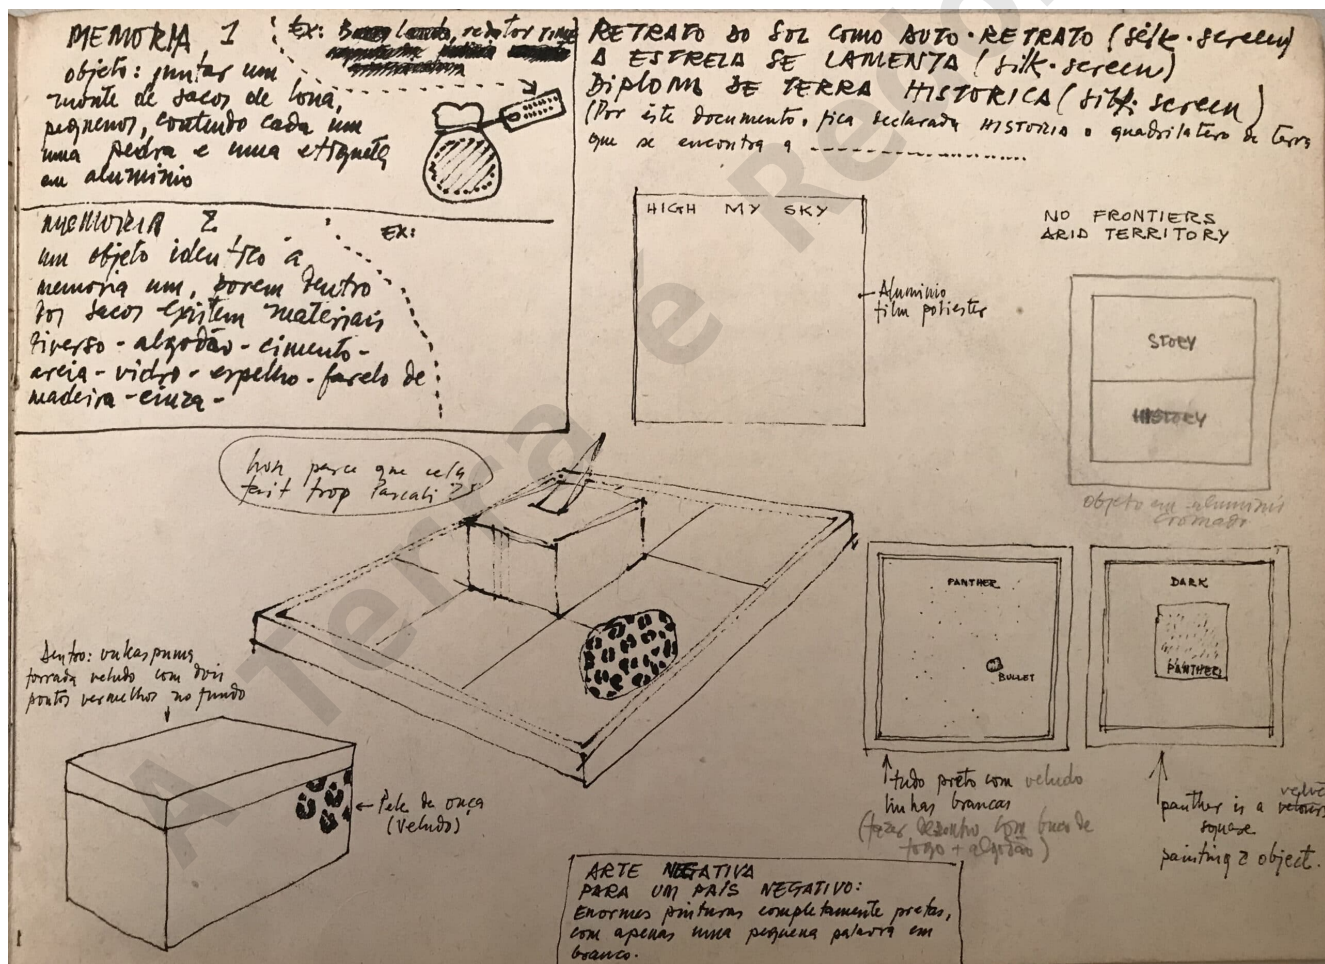 MEMORIA 1
objeto: juntar um
monte de sacos de lona,
pequenos, contendo cada um
uma pedra e uma etiqueta
em aluminio
EX: redator TIME
MEMORIA 2
EX:
um objeto identico a
memoria um, porem dentro
dos sacos existem materiais
diverso - algodão - cimento -
areia - vidro - espelho - farelo de
madeira - cinza -
RETRATO DO SOL COMO AUTO-RETRATO (silk-screen)
A ESTRELA SE LAMENTA (silk-screen)
DIPLOMA DE TERRA HISTORICA (silk-screen)
(Por êste documento, fica declarada HISTORIA o quadrilatero de terra
que se encontra a
HIGH MY SKY
Aluminio
film poliester
NO FRONTIERS
ARID TERRITORY
STORY
HISTORY
objeto em aluminio
cromado
non parce que cela
fait trop Pascali ?
PANTHER
BULLET
DARK
PANTHER
Dentro:
forrada veludo com dois
pontos vermelhos no fundo
Pele de onça
(Veludo)
tudo preto com veludo
linhas brancas
(fazer desenho com buco de
fogo + algodão)
panther is a velvet
square
painting 2 object.
ARTE NEGATIVA
PARA UM PAÍS NEGATIVO:
Enormes pinturas completamente pretas,
com apenas uma pequena palavra em
branco.
A Terra e Redo